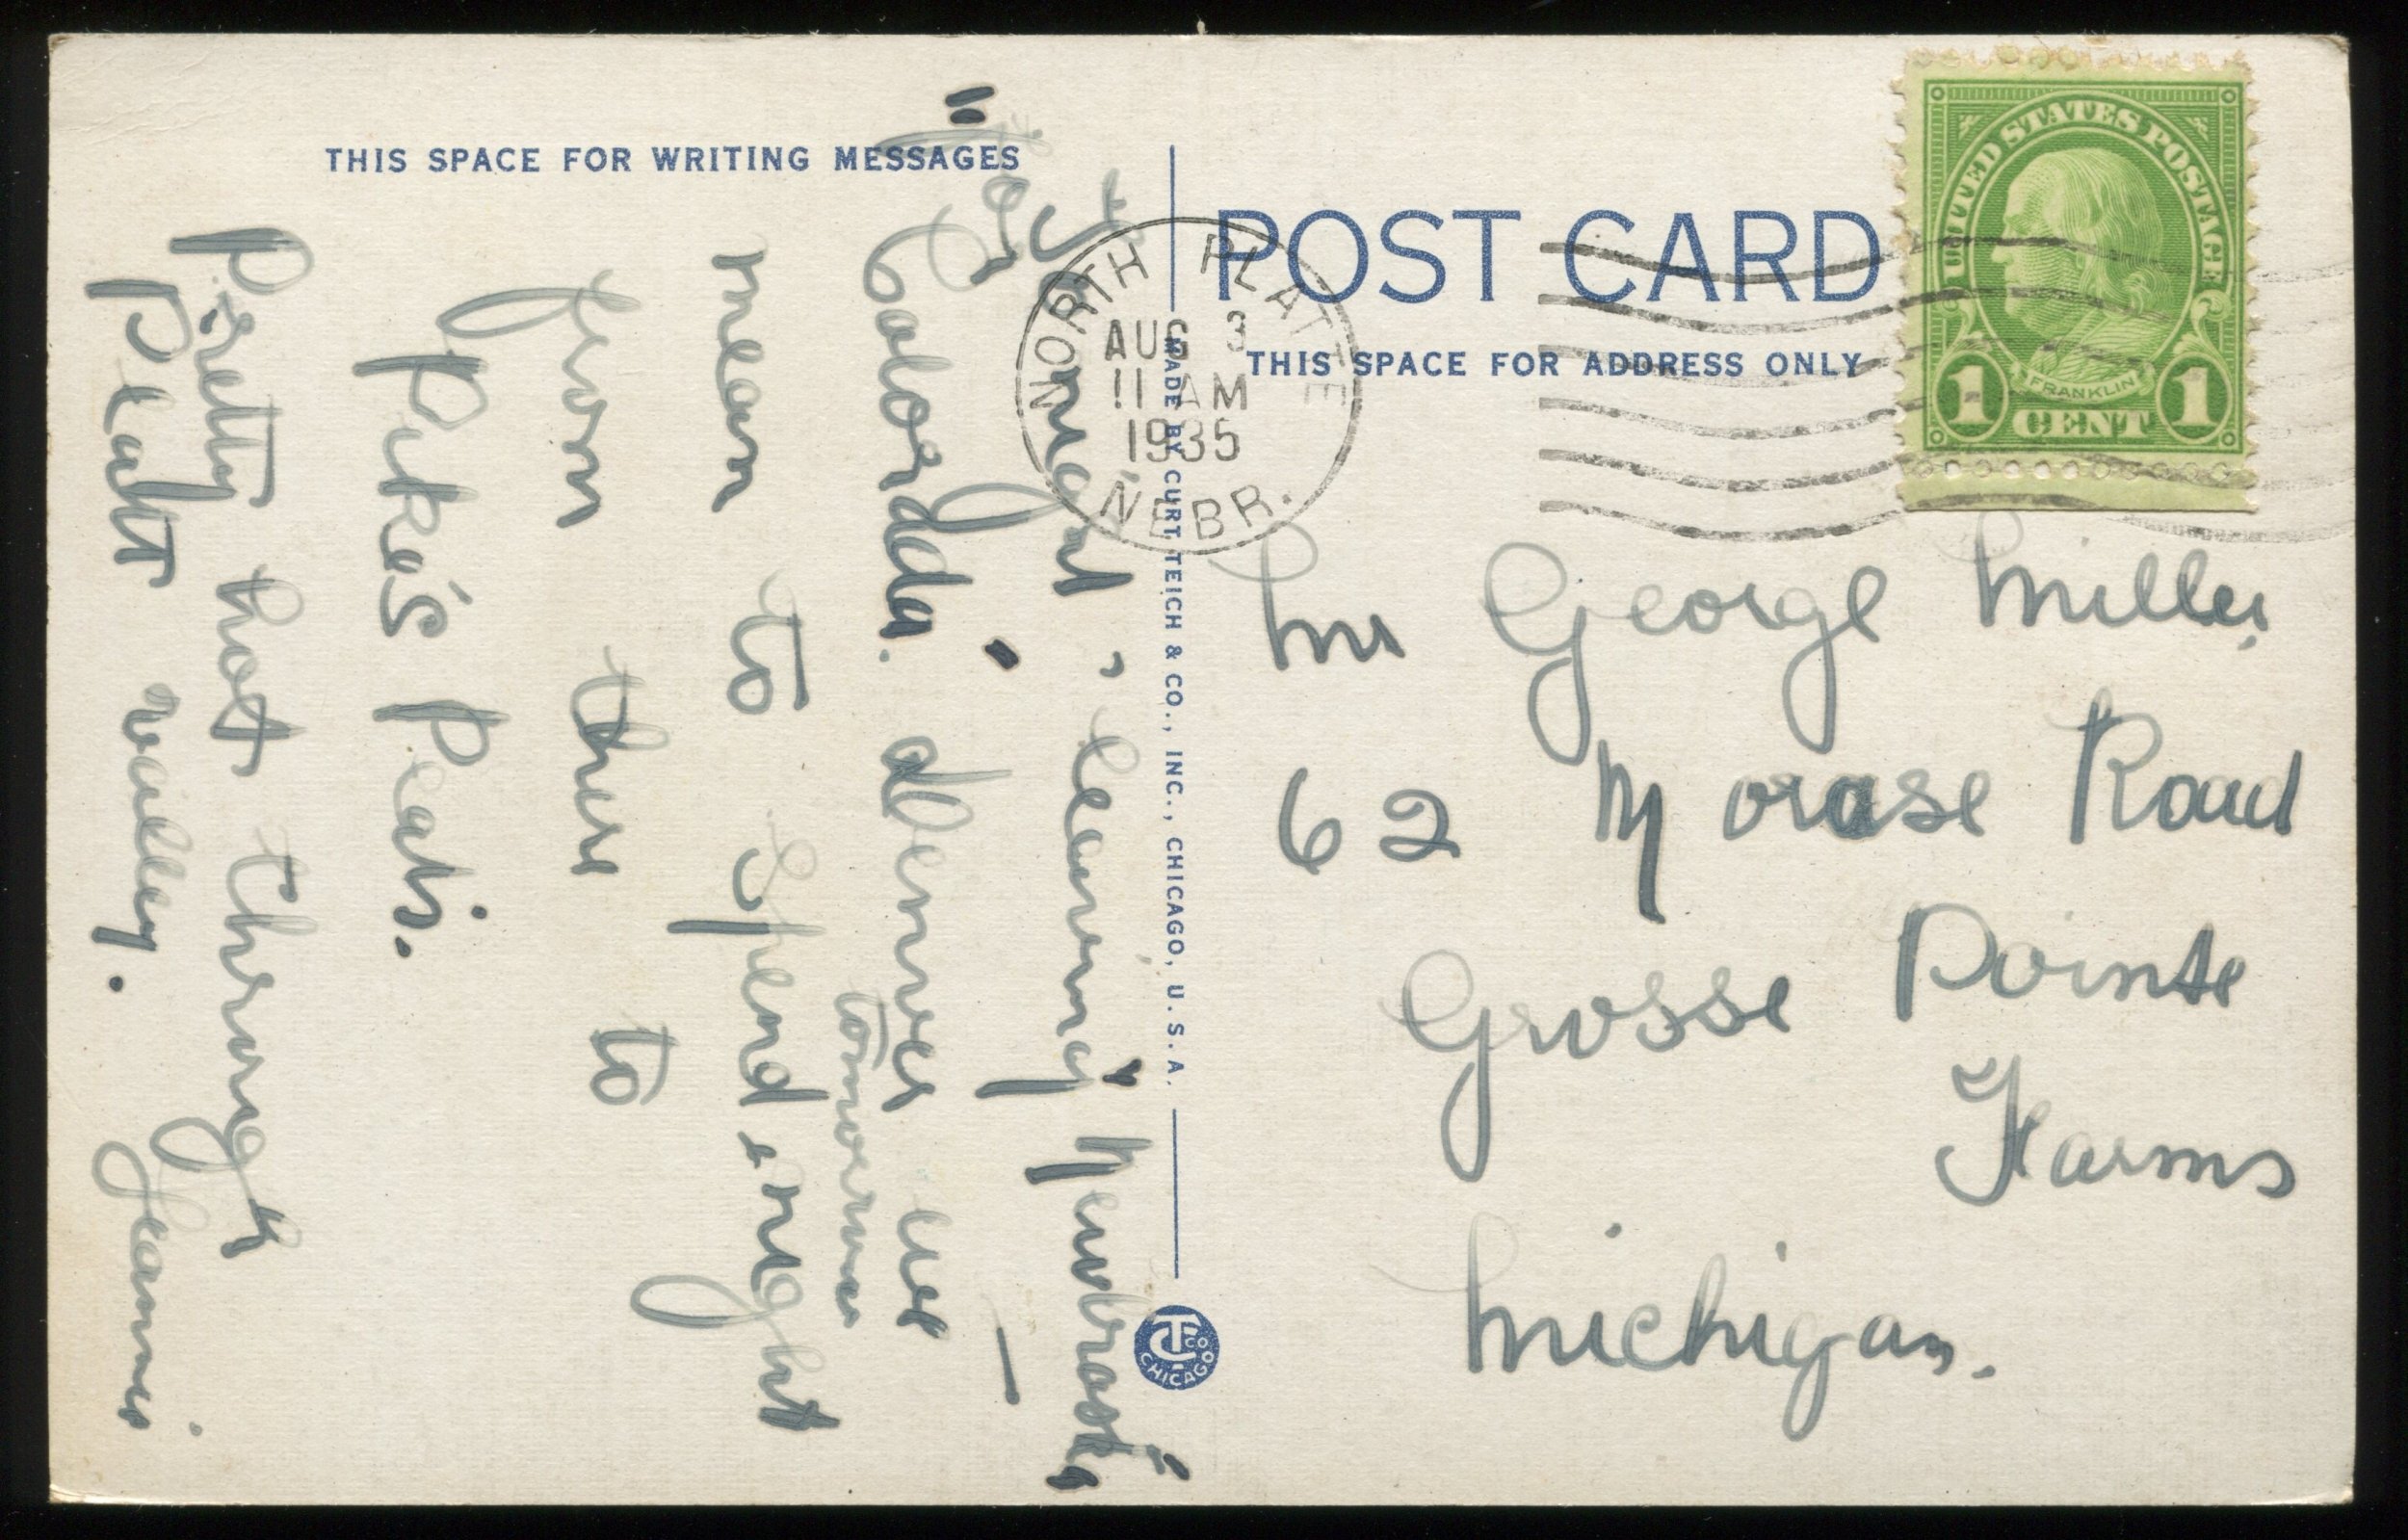 THIS SPACE FOR WRITING MESSAGES
POST CARD
THIS SPACE FOR ADDRESS ONLY
UNITED STATES POSTAGE
FRANKLIN
1 CENT 1
NORTH PLATTE
AUG 3
11 AM
1935
NEBR.
MADE BY CURT TEICH & CO., INC., CHICAGO, U.S.A.
CTCO CHICAGO
Mr George Miller
62 Morase Road
Grosse Pointe
Farms
Michigan.
leaving Newbraska
"for
Colordda." denver we
mean to spend night
tomorrow
from there to
Pike's Peak.
Pretty hot through
Platt valley. Jeannie